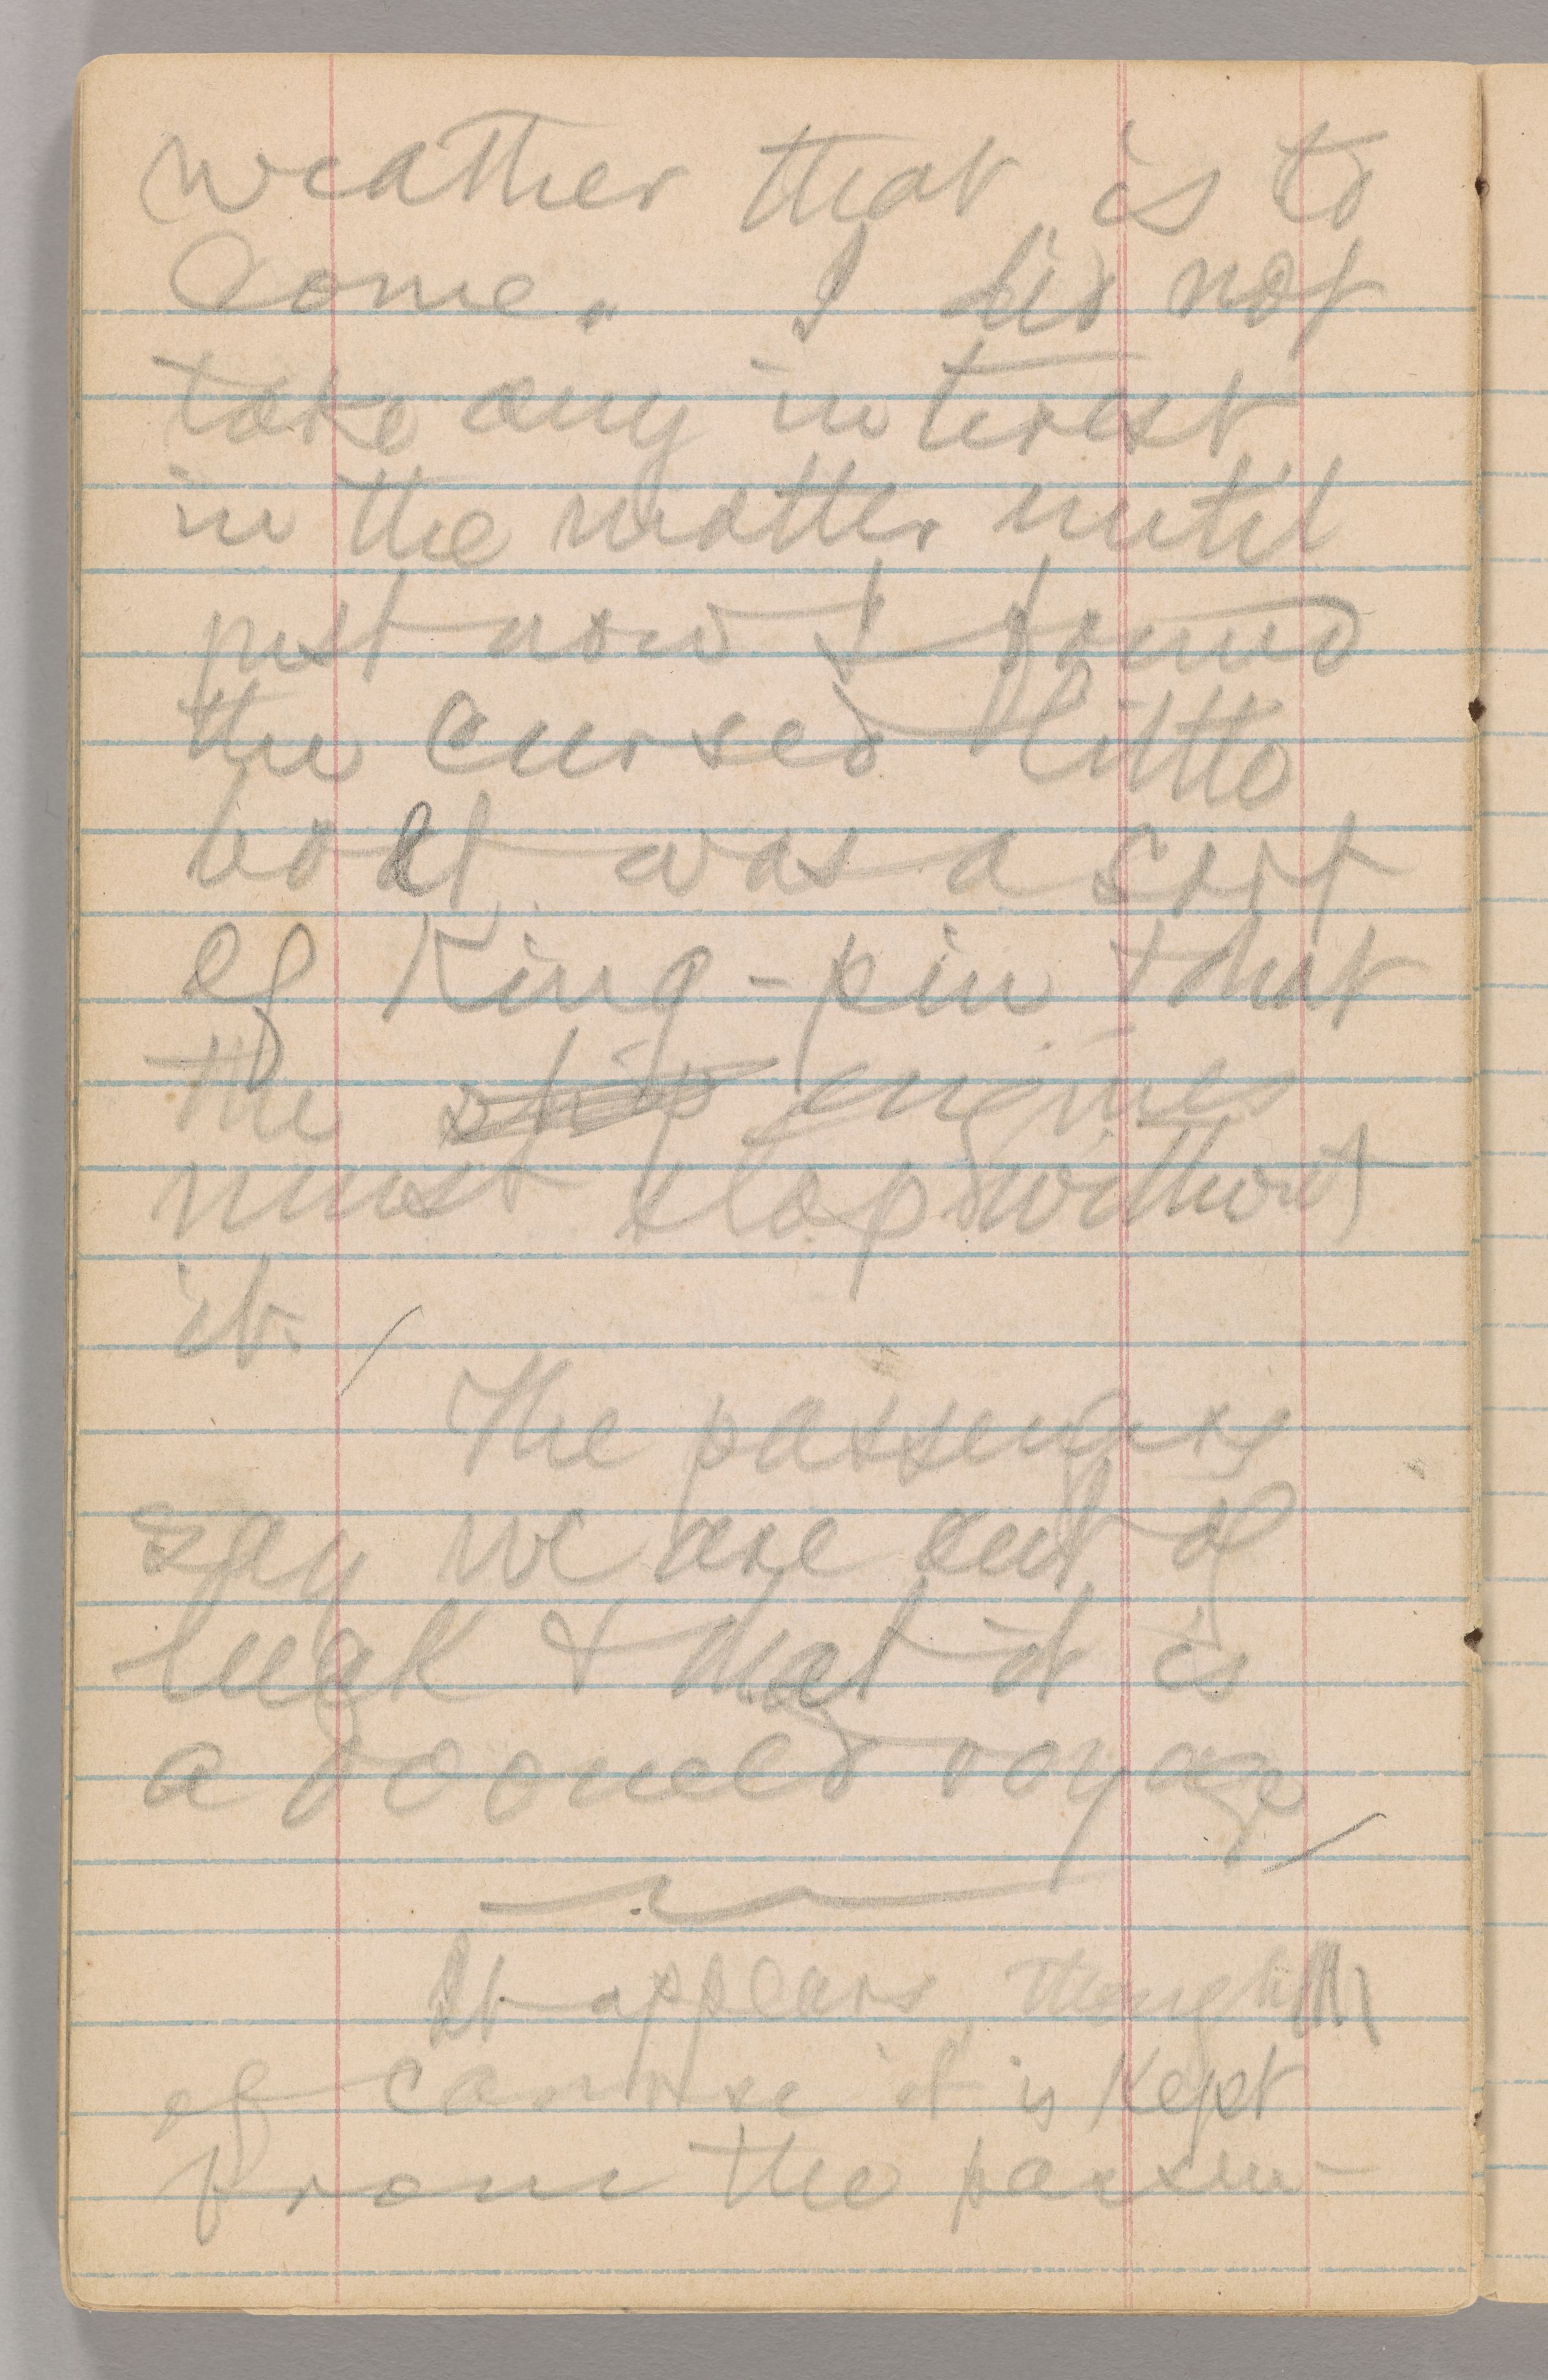 weather that is to
come. I did not
take any interest
in the matter until
just now I found
the cursed little
bolt was a sort
of King-pin that
the ship engines
must stop without
it.
The passengers
say we are out of
luck & that it is
a doomed voyage
It appears though
of course it is kept
from the passen-